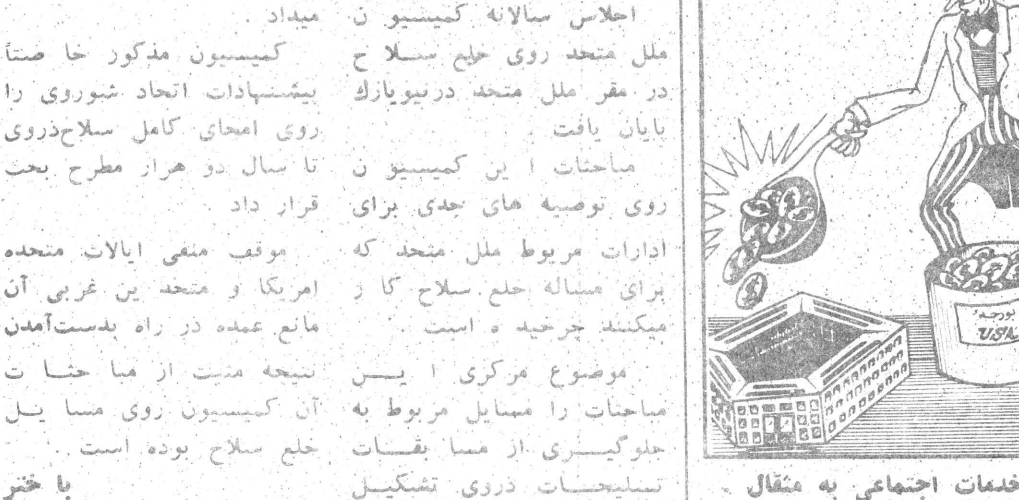 اجلاس سالانه کمیسیو ن
ملل متحد روی خلع سلا ح
در مقر ملل متحد درنیویارك
پایان یافت .
مباحثات ا ین کمیسیو ن
روی توصیه های جدی برای
ادارات مربوط ملل متحد که
برای مساله خلع سلاح کا ر
میکنند چرخید ه است .
موضوع مرکزی ا یــن
مباحثات را مسایل مربوط به
جلوگیــری از مسا بقــات
تسلیحــات ذروی تشکیــل
میداد .
کمیسیون مذکور خا صتاً
پیشنهادات اتحاد شوروی را
روی امحای کامل سلاح‌ذروی
تا سال دو هزار مطرح بحث
قرار داد .
موقف منفی ایالات متحده
امریکا و متحد ین غربی آن
مانع عمده در راه بدست‌آمدن
نتیجه مثبت از مبا حثــا ت
آن کمیسیون روی مسا یــل
خلع سلاح بوده است .
با ختر
بورجه
USA
خدمات اجتماعی به مثقال .